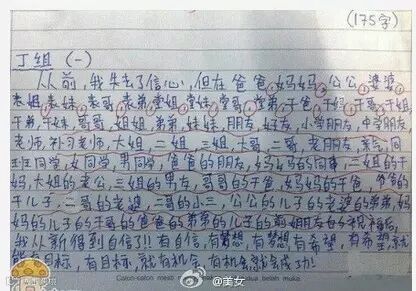 (175字)
丁组 (一)
从前,我失去了信心,但在爸爸,妈妈,公公,婆婆,
表姐,表妹,表哥,表弟,堂姐,堂妹,堂哥,堂弟,干爸,干妈,干哥,干姐,
干弟,干妹,哥哥,姐姐,弟弟,妹妹,朋友,好友,小学朋友,中学朋友,
老师,补习老师,大姐,二姐,三姐,大哥,二哥,老朋友,同
班同学,女同学,男同学,爸爸的朋友,妈妈的同事,二姐的干
妈,大姐的老公,三姐的男友,哥哥的干爸,妈妈的干爸,爷爷的
干儿子,二哥的老婆,三哥的小三,公公的儿子的老婆的弟弟,妈
妈的儿子的干哥的爸爸的弟弟的儿子的前女友的祝福后,
我从新得到自信了!!有自信,有梦想,有梦想有希望,有希望就
能有目标,有目标,就有机会,有机会就会成功!
@美女